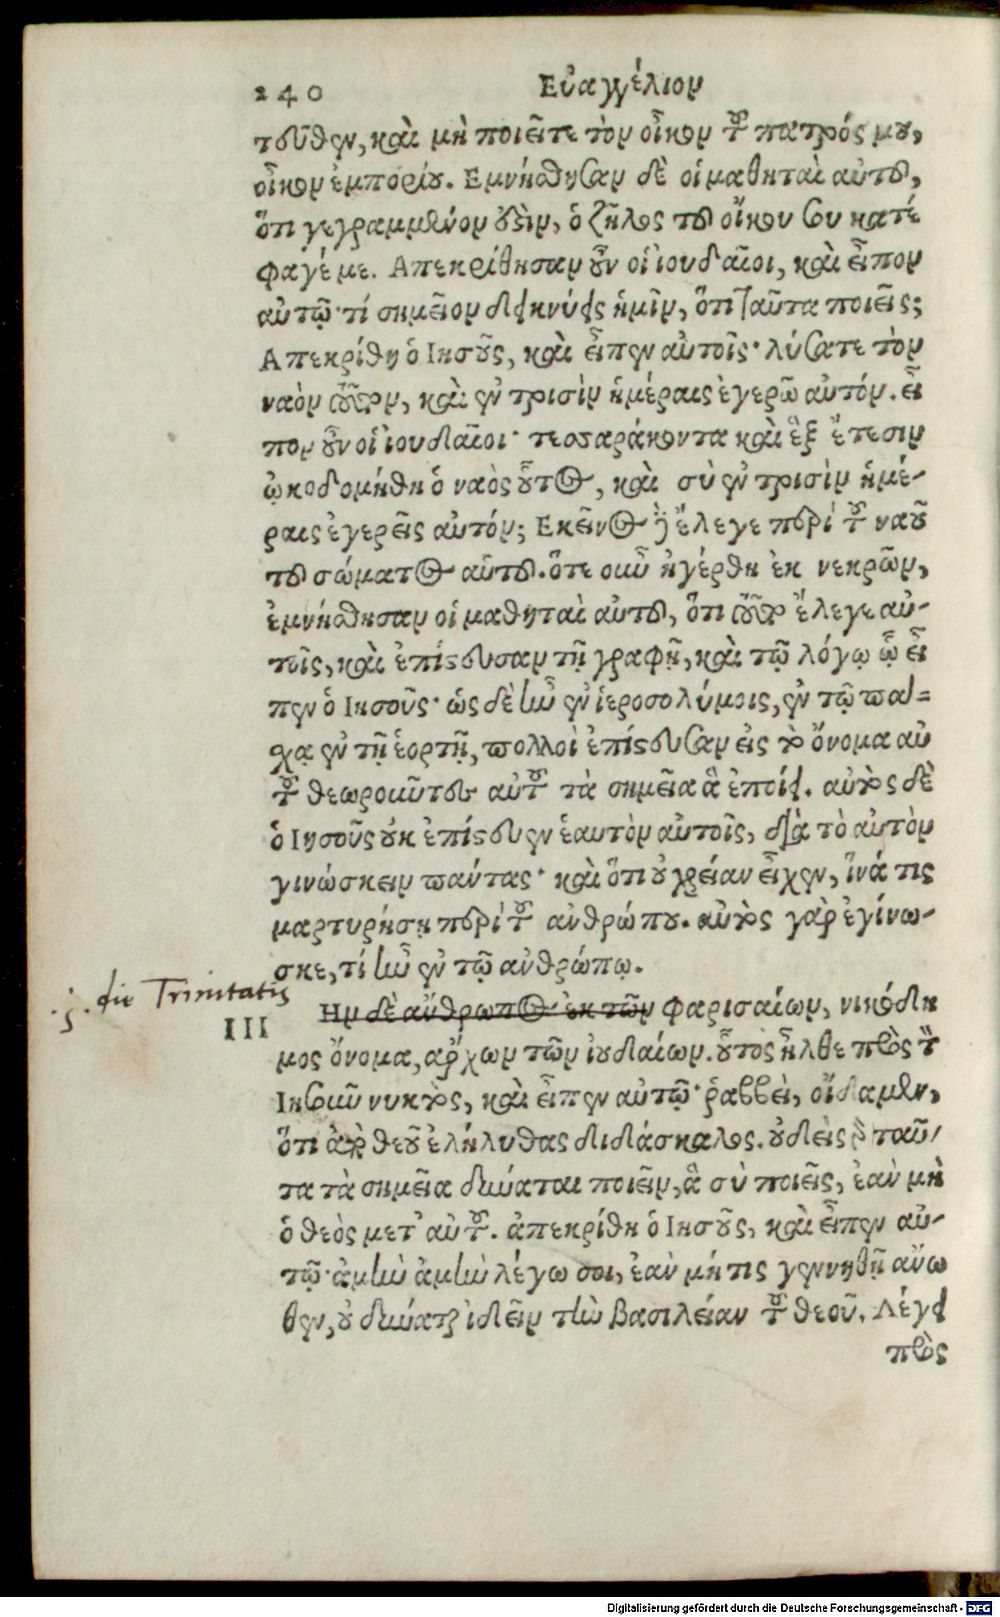 240 Εὐαγγέλιον
τεῦθεν, καὶ μὴ ποιεῖτε τὸν οἶκον τοῦ πατρός μου,
οἶκον ἐμπορίου. Εμνήσθησαν δὲ οἱ μαθηταὶ αὐτοῦ,
ὅτι γεγραμμένον ὀξὶν, ὁ ζῆλος τοῦ οἴκου σου κατέ
φαγέ με. Απεκρίθησαν οὖν οἱ ἰουδαῖοι, καὶ εἶπον
αὐτῷ· τί σημεῖον δεικνύεις ἡμῖν, ὅτι ταῦτα ποιεῖς;
Απεκρίθη ὁ Ιησοῦς, καὶ εἶπεν αὐτοῖς· λύσατε τὸν
ναὸν τοῦτον, καὶ ἐν τρισὶν ἡμέραις ἐγερῶ αὐτόν. εἶ
πον οὖν οἱ ἰουδαῖοι· τεσσαράκοντα καὶ ἓξ ἔτεσιν
ᾠκοδομήθη ὁ ναὸς οὗτος, καὶ σὺ ἐν τρισὶν ἡμέ-
ραις ἐγερεῖς αὐτόν; Εκεῖνος δὲ ἔλεγε περὶ τοῦ ναοῦ
τοῦ σώματος αὑτοῦ. ὅτε οὖν ἠγέρθη ἐκ νεκρῶν,
ἐμνήσθησαν οἱ μαθηταὶ αὐτοῦ, ὅτι τοῦτο ἔλεγε αὐ-
τοῖς, καὶ ἐπίστευσαν τῇ γραφῇ, καὶ τῷ λόγῳ ᾧ εἶ
πεν ὁ Ιησοῦς· ὡς δὲ ἦν ἐν ἱεροσολύμοις, ἐν τῷ πάσ=
χα ἐν τῇ ἑορτῇ, πολλοὶ ἐπίστευσαν εἰς τὸ ὄνομα αὐ
τοῦ θεωροῦντες αὐτοῦ τὰ σημεῖα ἃ ἐποίει. αὐτὸς δὲ
ὁ Ιησοῦς οὐκ ἐπίστευεν ἑαυτὸν αὐτοῖς, διὰ τὸ αὐτὸν
γινώσκειν πάντας· καὶ ὅτι οὐ χρείαν εἶχεν, ἵνά τις
μαρτυρήσῃ περὶ τοῦ ἀνθρώπου. αὐτὸς γὰρ ἐγίνω-
σκε, τί ἦν ἐν τῷ ἀνθρώπῳ.
die Trinitatis
III Ην δὲ ἄνθρωπος ἐκ τῶν φαρισαίων, νικόδη
μος ὄνομα, ἄρχων τῶν ἰουδαίων. οὗτος ἦλθε πρὸς τὸν
Ιησοῦν νυκτὸς, καὶ εἶπεν αὐτῷ· ῥαββὶ, οἴδαμεν,
ὅτι ἀπὸ θεοῦ ἐλήλυθας διδάσκαλος. οὐδεὶς γὰρ ταῦ-
τα τὰ σημεῖα δύναται ποιεῖν, ἃ σὺ ποιεῖς, ἐὰν μὴ
ὁ θεὸς μετ' αὐτοῦ. ἀπεκρίθη ὁ Ιησοῦς, καὶ εἶπεν αὐ-
τῷ· ἀμὴν ἀμὴν λέγω σοι, ἐὰν μή τις γεννηθῇ ἄνω
θεν, οὐ δύναται ἰδεῖν τὴν βασιλείαν τοῦ θεοῦ. Λέγει
πρὸς
Digitalisierung gefördert durch die Deutsche Forschungsgemeinschaft - DFG